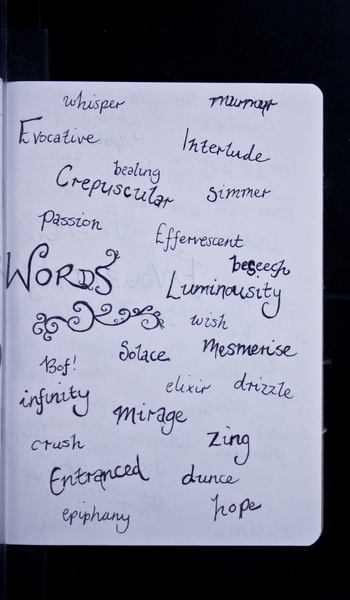 whisper murmur
Evocative Interlude
healing
Crepuscular Simmer
Passion Effervescent
beseech
WORDS Luminousity
wish
Bof! Solace Mesmerise
infinity elixir drizzle
mirage
crush zing
Entranced dunce
epiphany hope